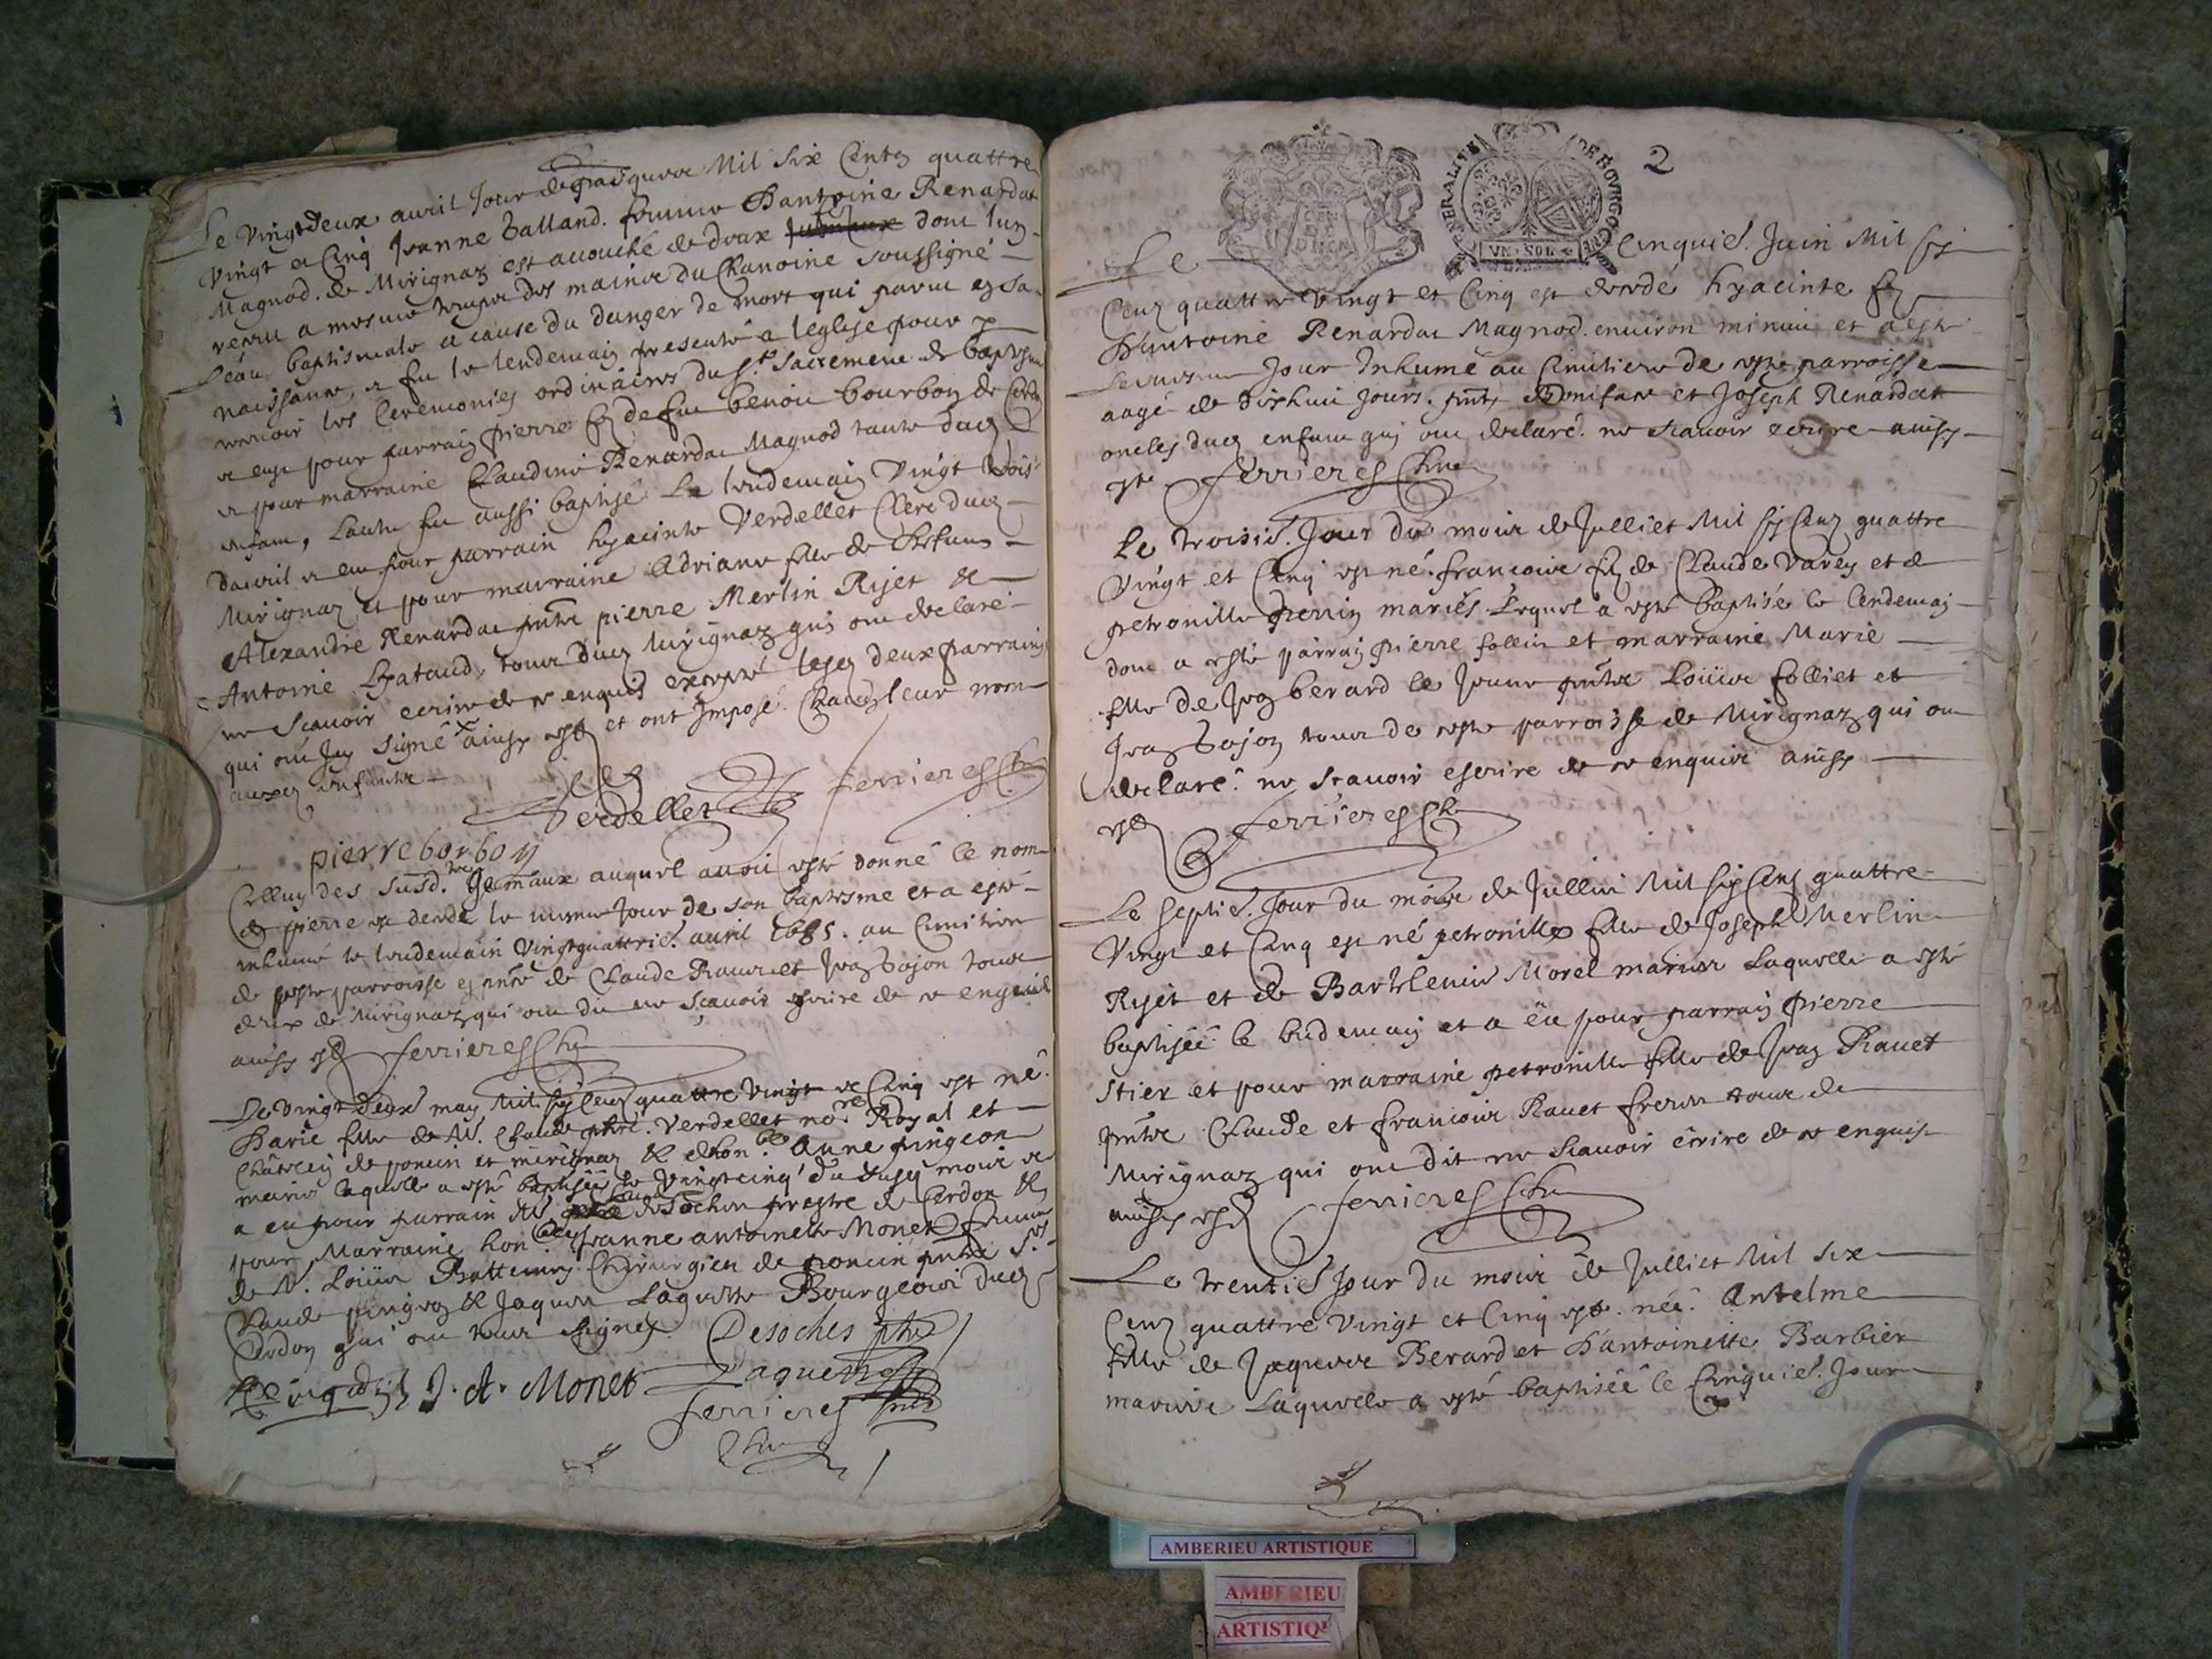 Le vingtdeux auril Jour de pasquer Mil six Cents quattre
vingt et Cinq Jeanne balland. femme Dantoine Renardat
Magnod. de Mirignaz est acouché de deux Jumeaux dont lun
receu a mesme temps des mains du Chanoine soussigné
Leau baptismale a cause du danger de mort qui parut en sa
naissance, et fu le lendemain presenté a leglise pour
recevoir les Ceremonies ordinaires du st. Sacrement de baptesme
et eu pour parrain pierre fs de feu benoit bourbon de Cerdon
et pour marraine Claudine Renardat Magnod tante dud
enfant, Lautre fu aussi baptisé Le lendemain vingt trois
dauril et eu pour parrain hyacinte Verdellet Clerc dud
Mirignaz et pour marraine Adriane fille de
Alexandre Renardat pnts pierre Merlin Rijet &
Antoine Lhataud, tous dud Mirignaz qui ont declaré
ne scauoir ecrire de ce enquis excepté lesd deux parrains
qui ont signé ainsy est et ont Imposé Chacun leur nom
auxd enfants
Verdellet ferrieres Chne
pierre borbon
Celluy des susd. Gemaux auquel auoit esté donné le nom
de pierre est decedé le mesme Jour de son baptesme et a esté
inhumé le lendemain vingtquattrie. auril 1685. au Cimitiere
de ceste parroisse en pnce de Claude Rauet et Jean bajon tous
deux de Mirignaz qui ont dit ne sçauoir escrire de ce enquis
ainsy est ferrieres Chne
Le vingt deux may Mil six Cents quattre vingt et Cinq est né
Marie fille de M. Claude Verdellet nore. Royal et
Châtelain de poncin et mirignaz & dhonble Anne pingeon
mariés laquelle a esté baptisée le vingtcinq du dusd mois et
a eu pour parrain M. Claude desoches prestre de Cerdon &
pour Marraine hon. Jeanne antoinette Monet femme
de M. Loüis Chirurgien de poncin pnts Srs
Claude pingeon & Jaques Laguette Bourgeois dud
Cerdon qui ont tous signés. Desoches ptre
J. A. Monet
ferrieres
Chne
GENERALITE DE BOVRGOGNE
VN SOL
2
Le Cinquie. Juin Mil six
Cens quattre vingt et Cinq est decedé hyacinte fs
Dantoine Renardat Magnod. enuiron minuit et a esté
le mesme Jour Inhumé au Cimitiere de ceste parroisse
aagé de Jours. pnts Boniface et Joseph Renardat
oncles dud enfant qui ont declaré. ne scauoir ecrire ainsy
este ferrieres Chne
Le troisie. Jour du mois de Julliet Mil six Cens quattre
vingt et Cinq est né francois fs de Claude Varey et de
petronille perrin mariés. Lequel a esté baptisé le lendemain
dont a esté parrain pierre follin et marraine Marie
fille de Jean berard le Jeune pnts Loüis folliet et
Jean bajon tous de ceste parroisse de Mirignaz qui ont
declaré ne scauoir escrire de ce enquis ainsy
est ferrieres Chne
Le septie. Jour du mois de Julliet Mil six Cens quattre
vingt et Cinq est né petronille fille de Joseph Merlin
Rijet et de Barthlemie Morel mariés Laquelle a esté
baptisée le lendemain et a eu pour parrain pierre
Stier et pour marraine petronille fille de Jean Rauet
pnts Claude et francois Rauet freres tous de
Mirignaz qui ont dit ne scauoir écrire de ce enquis
ainsy est ferrieres Chne
Le trentie Jour du mois de Julliet Mil six
Cens quattre vingt et Cinq est. née Antelme
fille de Jaques Berard et Dantoinette Barbier
mariés Laquelle a esté baptisée le Cinquie. Jour
AMBERIEU ARTISTIQUE
AMBERIEU
ARTISTIQU